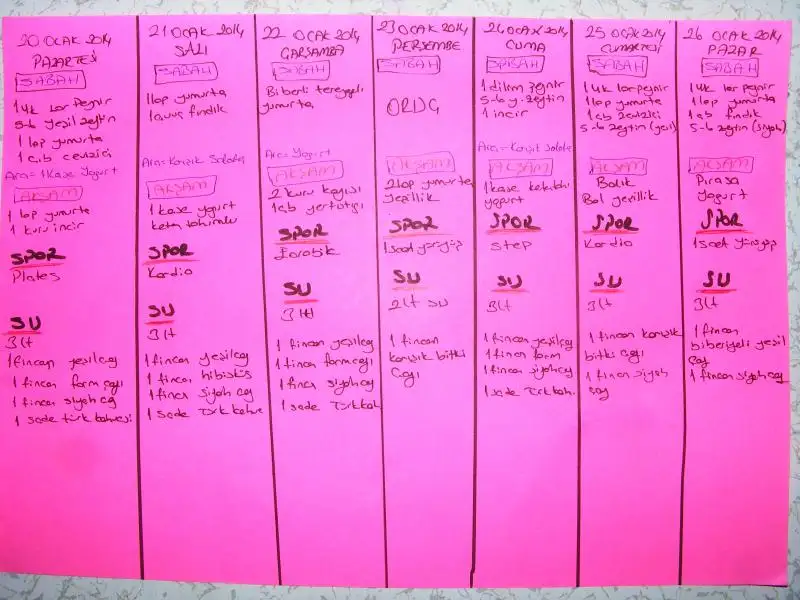 20 OCAK 2014
PAZARTESİ
SABAH
1 yk lor peynir
5-6 yeşil zeytin
1 lop yumurta
1 a.b cevizici
Ara= 1 Kase Yogurt
AKŞAM
1 lop yumurta
1 kuru incir
SPOR
Plates
SU
3 lt
1 fincan yeşilçay
1 fincan form çayı
1 fincan siyah çay
1 sade türk kahvesi
21 OCAK 2014
SALI
SABAH
1 lop yumurta
1 avuç fındık
Ara= Karışık Salata
AKŞAM
1 kase yogurt
keten tohumlu
SPOR
Kardio
SU
3 lt
1 fincan yeşilçay
1 fincan hibisküs
1 fincan siyah çay
1 sade Türk kahve
22 OCAK 2014
ÇARŞAMBA
SABAH
Biberli tereyağlı
yumurta
Ara= Yogurt
AKŞAM
2 kuru kayısı
1 a.b yerfıstığı
SPOR
SU
3 lt
1 fincan yeşilçay
1 fincan formçayı
1 fincan siyah çay
1 sade Türk kah
23 OCAK 2014
PERŞEMBE
SABAH
ORUÇ
AKŞAM
2 lop yumurta
yeşillik
SPOR
1 saat yürüyüş
SU
2 lt su
1 fincan
karışık bitki
çayı
24 OCAK 2014
CUMA
SABAH
1 dilim peynir
5-6 y. zeytin
1 incir
Ara= Karışık salata
AKŞAM
1 kase
yogurt
SPOR
step
SU
3 lt
1 fincan yeşilçay
1 fincan form
1 fincan siyah çay
1 sade Türk kah.
25 OCAK 2014
CUMARTESİ
SABAH
1 yk lor peynir
1 lop yumurta
1 a.b cevizici
5-6 zeytin (yeşil)
AKŞAM
Balık
Bol yeşillik
SPOR
Kardio
SU
3 lt
1 fincan karışık
bitki çayı
1 fincan siyah
çay
26 OCAK 2014
PAZAR
SABAH
1 yk lor peynir
1 lop yumurta
1 a.b fındık
5-6 zeytin (siyah)
AKŞAM
Pırasa
Yogurt
SPOR
1 saat yürüyüş
SU
3 lt
1 fincan
biberiyeli yeşil
çay
1 fincan siyah çay